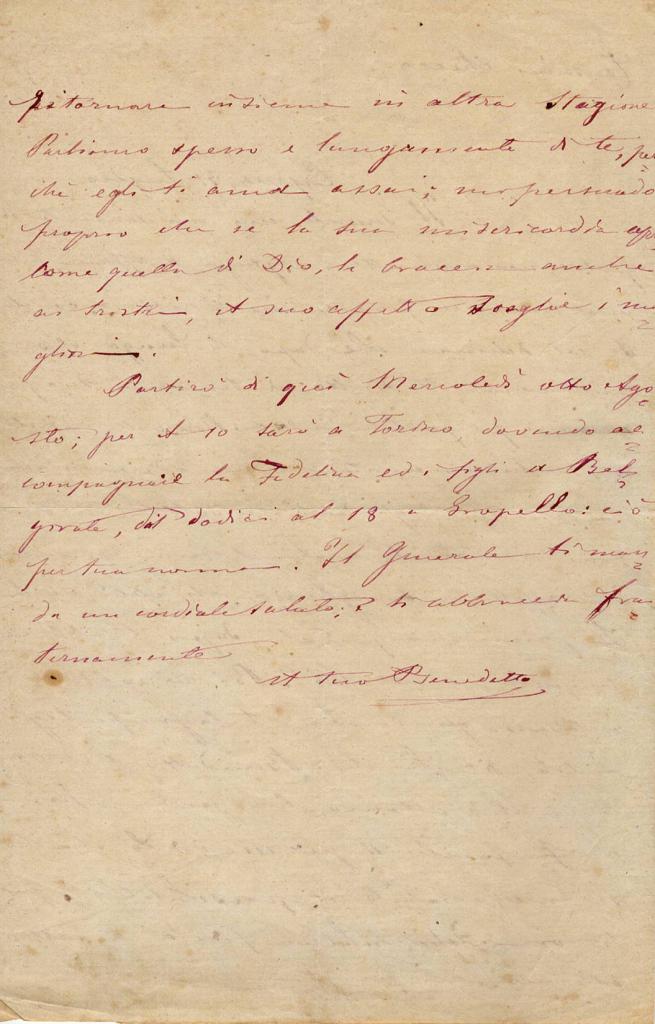 ritornare insieme in altra Stagione
Parliamo spesso e lungamente di te, per
chè egli ti ama assai; mi persuado
proprio che se la sua misericordia
come quella di Dio, le braccia anche
ai tristi, il suo affetto sceglie i mi
gliori.
Partirò di quì Mercoledì otto Ago
sto; per il 10 sarò a Torino, dovendo ac
compagnare la Fedelina ed i figli a Bel
girate, dal dodici al 18 a Gropello: ciò
per tua norma. Il Generale ti man
da un cordiale saluto; e ti abbraccia fra
ternamente
il tuo Benedetto